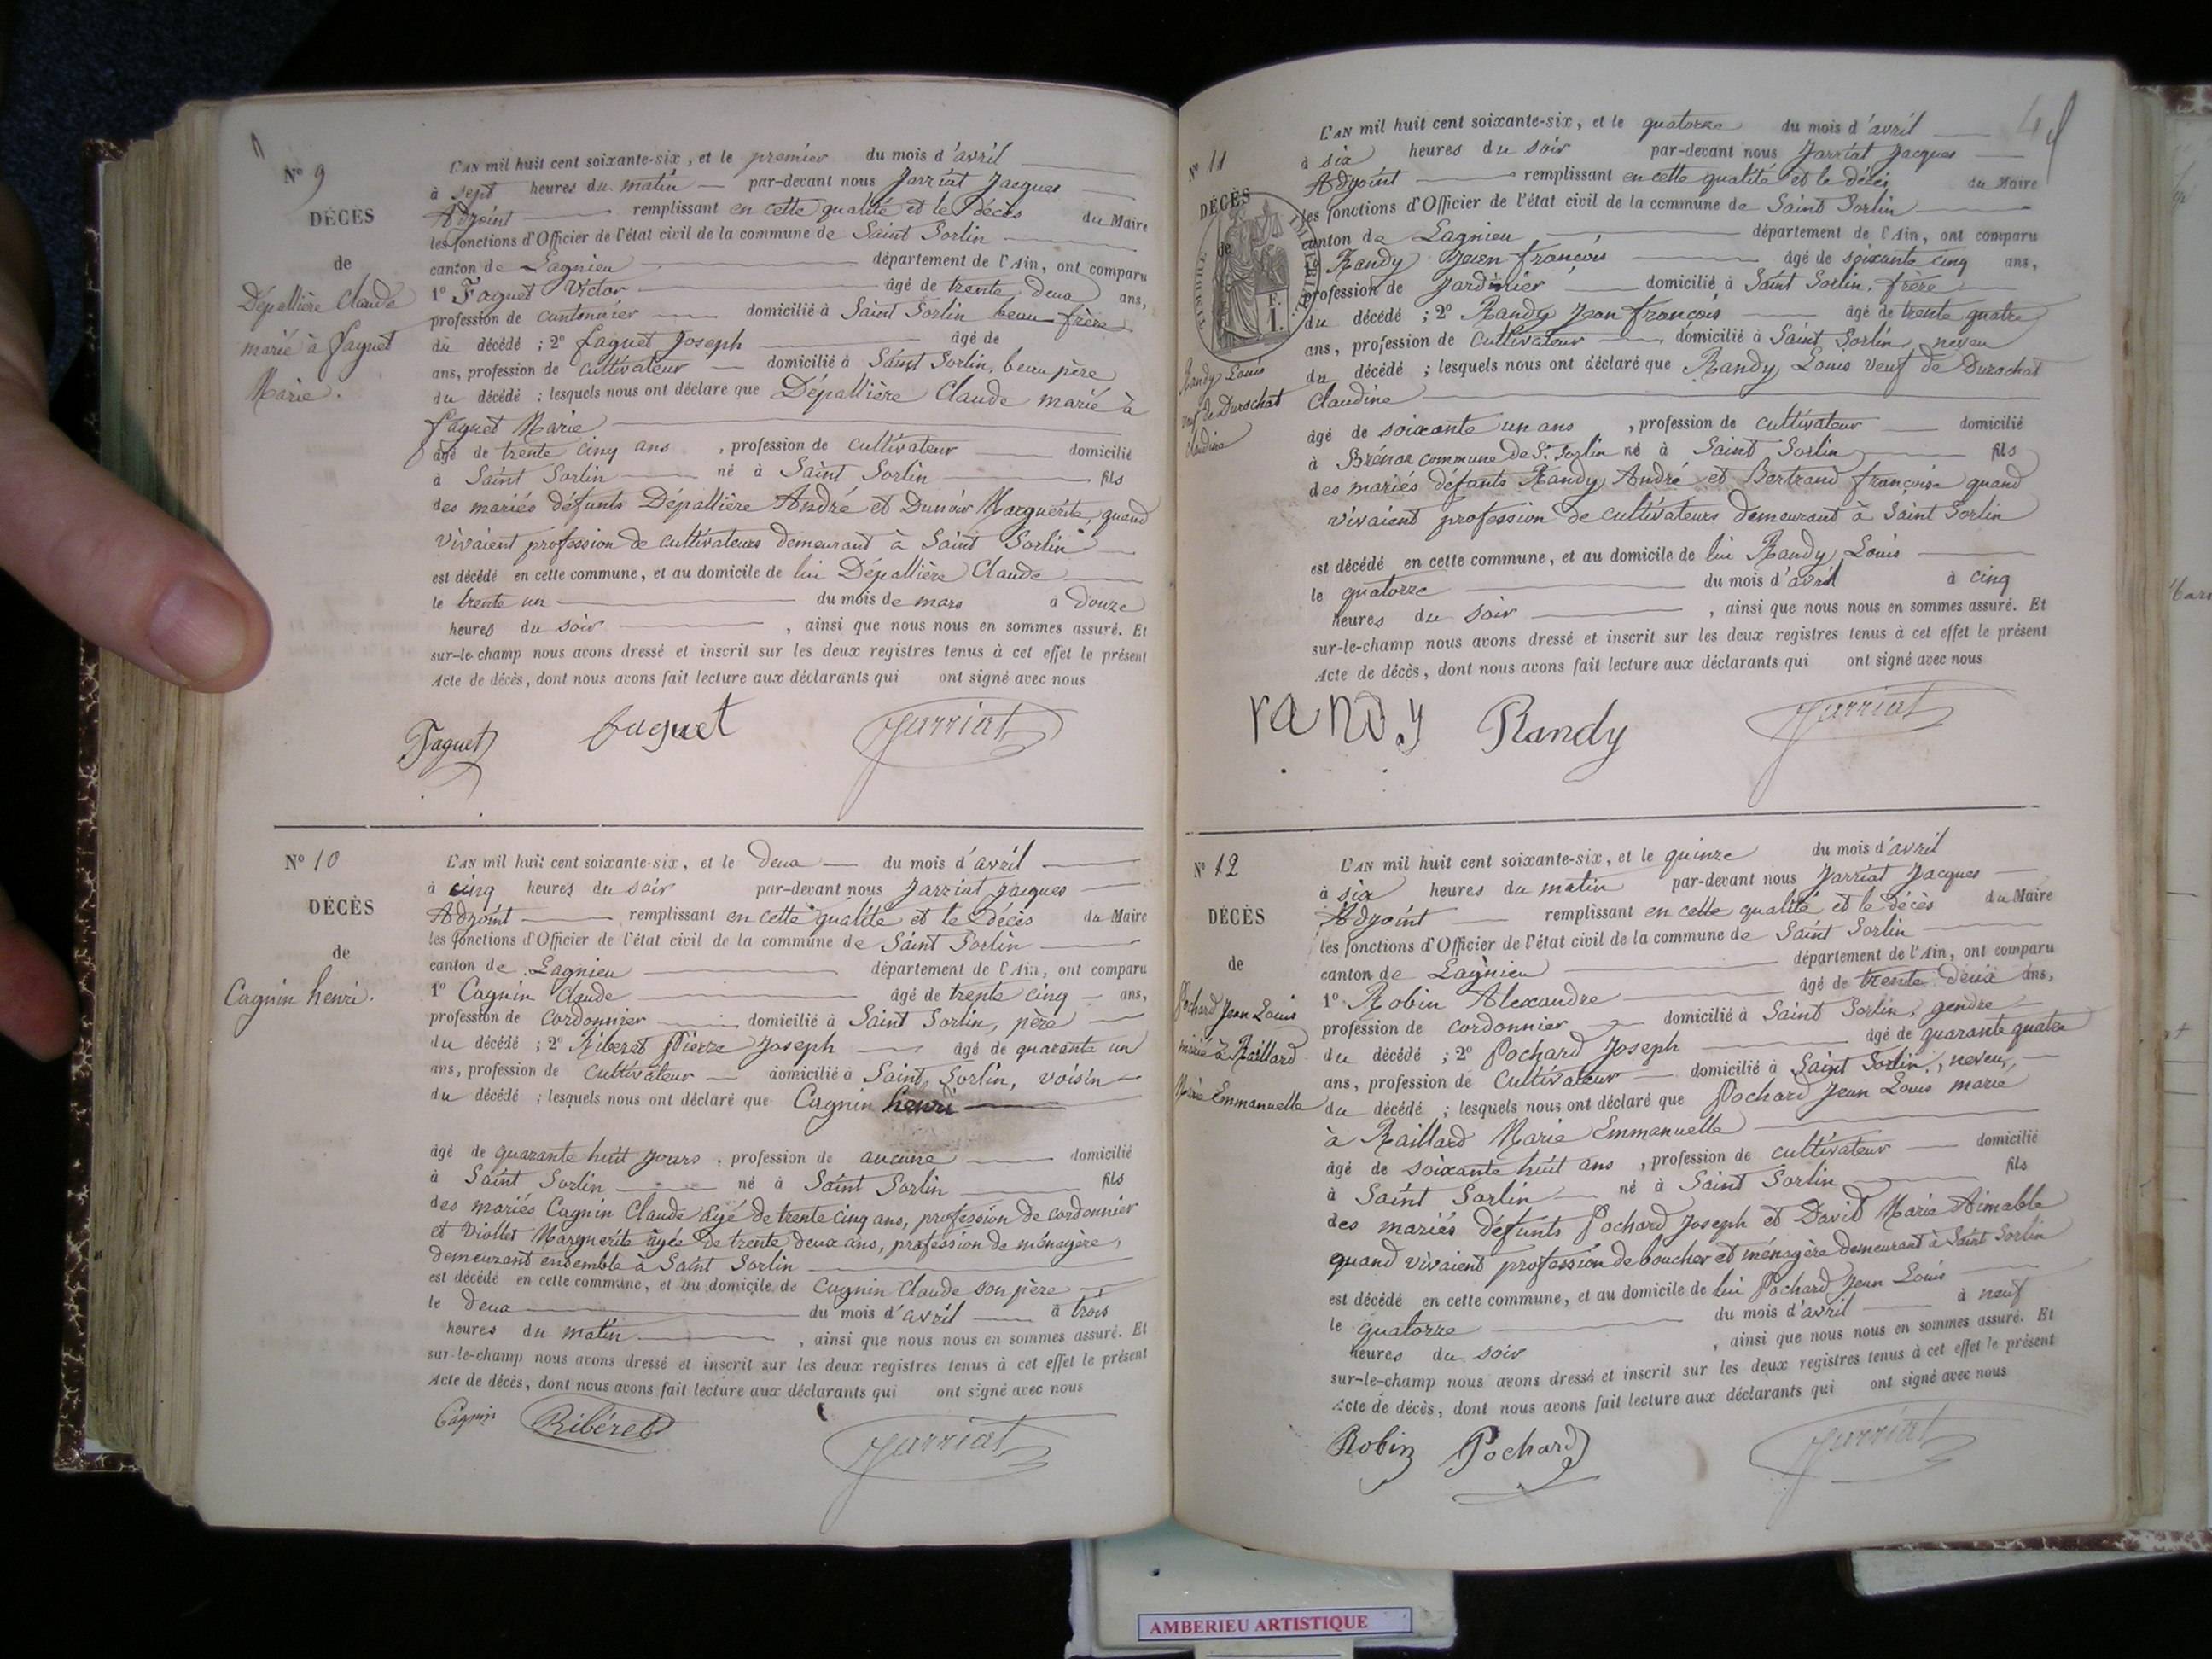 N° 9
DÉCÈS
de
Dépallière Claude
marié à Faguet
Marie.
L'AN mil huit cent soixante-six, et le premier du mois d'avril
à sept heures du matin par-devant nous Jarriat Jacques
Adjoint remplissant en cette qualité et le décès du Maire
les fonctions d'Officier de l'état civil de la commune de Saint Sorlin
canton de Lagnieu département de l'Ain, ont comparu
1° Faguet Victor âgé de trente deux ans,
profession de cantonnier domicilié à Saint Sorlin beau-frère
du décédé ; 2° Faguet Joseph âgé de
ans, profession de cultivateur domicilié à Saint Sorlin, beau père
du décédé ; lesquels nous ont déclaré que Dépallière Claude marié à
Faguet Marie
âgé de trente cinq ans , profession de cultivateur domicilié
à Saint Sorlin né à Saint Sorlin fils
des mariés défunts Dépallière André et Dunoir Marguerite, quand
vivaient profession de cultivateurs demeurant à Saint Sorlin
est décédé en cette commune, et au domicile de lui Dépallière Claude
le trente un du mois de mars à douze
heures du soir , ainsi que nous nous en sommes assuré. Et
sur-le-champ nous avons dressé et inscrit sur les deux registres tenus à cet effet le présent
Acte de décès, dont nous avons fait lecture aux déclarants qui ont signé avec nous
Faguet faguet Jarriat
N° 10
DÉCÈS
de
Cagnin henri.
L'AN mil huit cent soixante-six, et le deux du mois d'avril
à cinq heures du soir par-devant nous Jarriat Jacques
Adjoint remplissant en cette qualité et le décès du Maire
les fonctions d'Officier de l'état civil de la commune de Saint Sorlin
canton de Lagnieu département de l'Ain, ont comparu
1° Cagnin Claude âgé de trente cinq ans,
profession de cordonnier domicilié à Saint Sorlin, père
du décédé ; 2° Riberet Pierre Joseph âgé de quarante un
ans, profession de cultivateur domicilié à Saint Sorlin, voisin
du décédé ; lesquels nous ont déclaré que Cagnin henri
âgé de quarante huit jours , profession de aucune domicilié
à Saint Sorlin né à Saint Sorlin fils
des mariés Cagnin Claude âgé de trente cinq ans, profession de cordonnier
et Viollet Marguerite âgée de trente deux ans, profession de ménagère,
demeurant ensemble à Saint Sorlin
est décédé en cette commune, et au domicile de Cagnin Claude son père
le deux du mois d'avril à trois
heures du matin , ainsi que nous nous en sommes assuré. Et
sur-le-champ nous avons dressé et inscrit sur les deux registres tenus à cet effet le présent
Acte de décès, dont nous avons fait lecture aux déclarants qui ont signé avec nous
Cagnin Ribéret Jarriat
N° 11
DÉCÈS
de
Randy Louis
veuf de Durochat
Claudine
TIMBRE IMPÉRIAL
L'AN mil huit cent soixante-six, et le quatorze du mois d'avril
à six heures du soir par-devant nous Jarriat Jacques
Adjoint remplissant en cette qualité et le décès du Maire
les fonctions d'Officier de l'état civil de la commune de Saint Sorlin
canton de Lagnieu département de l'Ain, ont comparu
Randy Jean françois âgé de soixante cinq ans,
profession de Jardinier domicilié à Saint Sorlin, frère
du décédé ; 2° Randy Jean françois âgé de trente quatre
ans, profession de cultivateur domicilié à Saint Sorlin, neveu
du décédé ; lesquels nous ont déclaré que Randy Louis veuf de Durochat
Claudine
âgé de soixante un ans , profession de cultivateur domicilié
à Brénaz commune de St Sorlin né à Saint Sorlin fils
des mariés défunts Randy André et Bertrand françoise quand
vivaient profession de cultivateurs demeurant à Saint Sorlin
est décédé en cette commune, et au domicile de lui Randy Louis
le quatorze du mois d'avril à cinq
heures du soir , ainsi que nous nous en sommes assuré. Et
sur-le-champ nous avons dressé et inscrit sur les deux registres tenus à cet effet le présent
Acte de décès, dont nous avons fait lecture aux déclarants qui ont signé avec nous
randy Randy Jarriat
N° 12
DÉCÈS
de
Pochard Jean Louis
marié à Raillard
Marie Emmanuelle
L'AN mil huit cent soixante-six, et le quinze du mois d'avril
à six heures du matin par-devant nous Jarriat Jacques
Adjoint remplissant en cette qualité et le décès du Maire
les fonctions d'Officier de l'état civil de la commune de Saint Sorlin
canton de Lagnieu département de l'Ain, ont comparu
1° Robin Alexandre âgé de trente deux ans,
profession de cordonnier domicilié à Saint Sorlin, gendre
du décédé ; 2° Pochard Joseph âgé de quarante quatre
ans, profession de cultivateur domicilié à Saint Sorlin, neveu,
du décédé ; lesquels nous ont déclaré que Pochard Jean Louis marié
à Raillard Marie Emmanuelle
âgé de soixante huit ans , profession de cultivateur domicilié
à Saint Sorlin né à Saint Sorlin fils
des mariés défunts Pochard Joseph et David Marie Aimable
quand vivaient profession de boucher et ménagère demeurant à Saint Sorlin
est décédé en cette commune, et au domicile de lui Pochard Jean Louis
le quatorze du mois d'avril à neuf
heures du soir , ainsi que nous nous en sommes assuré. Et
sur-le-champ nous avons dressé et inscrit sur les deux registres tenus à cet effet le présent
Acte de décès, dont nous avons fait lecture aux déclarants qui ont signé avec nous
Robin Pochard Jarriat
AMBERIEU ARTISTIQUE